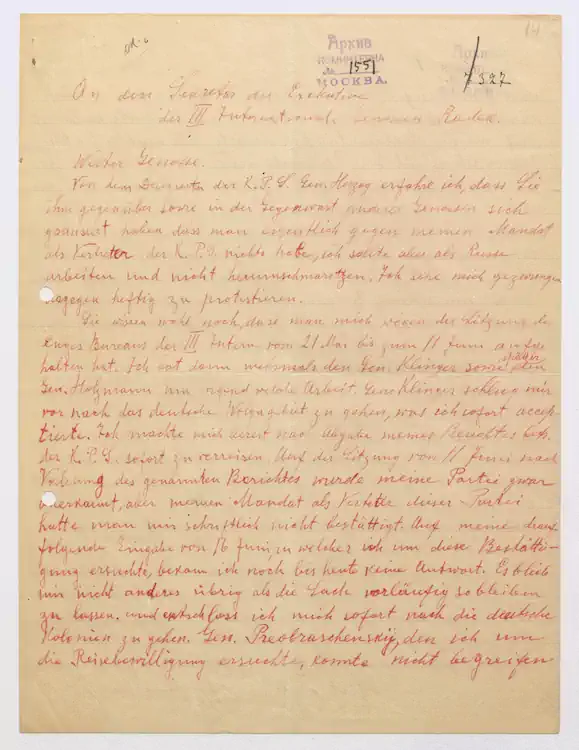 14
Архив
КОМИНТЕРНА
№ 1551
МОСКВА.
7327
An den Secretär der Executive
der III International Genossen Radek.
Werter Genosse.
Von dem Delegierten der K.P.S. Gen. Herzog erfahre ich, dass Sie
ihm gegenüber sowie in der Gegenwart anderer Genossen sich
geäussert haben dass man eigentlich gegen meinen Mandat
als Vertreter der K.P.G. nichts habe, ich sollte aber als Russe
arbeiten und nicht herumschmarotzen. Ich sehe mich gezwungen
dagegen heftig zu protestieren.
Sie wissen wohl noch, dass man mich wegen der Sitzung des
enges Bureaus der III Intern. vom 21 Mai bis zum 11 Juni
halten hat. Ich bat dann mehrmals den Gen. Klinger sowie den
Gen. Holzmann um irgend welche Arbeit. Gen. Klinger schlug mir
vor nach das deutsche Wolgagebiet zu gehen, was ich sofort accep-
tierte. Ich machte mich bereit nach Abgabe meines Berichtes betr.
der K.P.G. sofort zu verreisen. Auf der Sitzung vom 11 Juni nach
Vorlesung des genannten Berichtes wurde meine Partei zwar
anerkannt, aber meinen Mandat als Vertreter dieser Partei
hatte man mir schriftlich nicht bestättigt. Auf meine darauf-
folgende Eingabe vom 16 Juni, in welcher ich um diese Bestätti-
gung ersuchte, bekam ich noch bis heute keine Antwort. Es blieb
mir nicht anderes übrig als die Sache vorläufig so bleiben
zu lassen und entschloss ich mich sofort nach die deutsche
Kolonien zu gehen. Gen. Preobraschenskij, den ich um
die Reisebewilligung ersuchte, konnte nicht begreifen